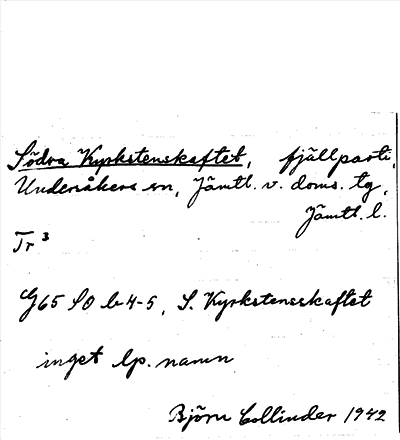 Södra Kyrkstenskaftet, fjällparti,
Undersåkers sn, Jämtl. v. doms. tg,
Jämtl. l.
Tr 3
G65 SO b 4-5, S. Kyrkstensskaftet
inget lp. namn
Björn Collinder 1942